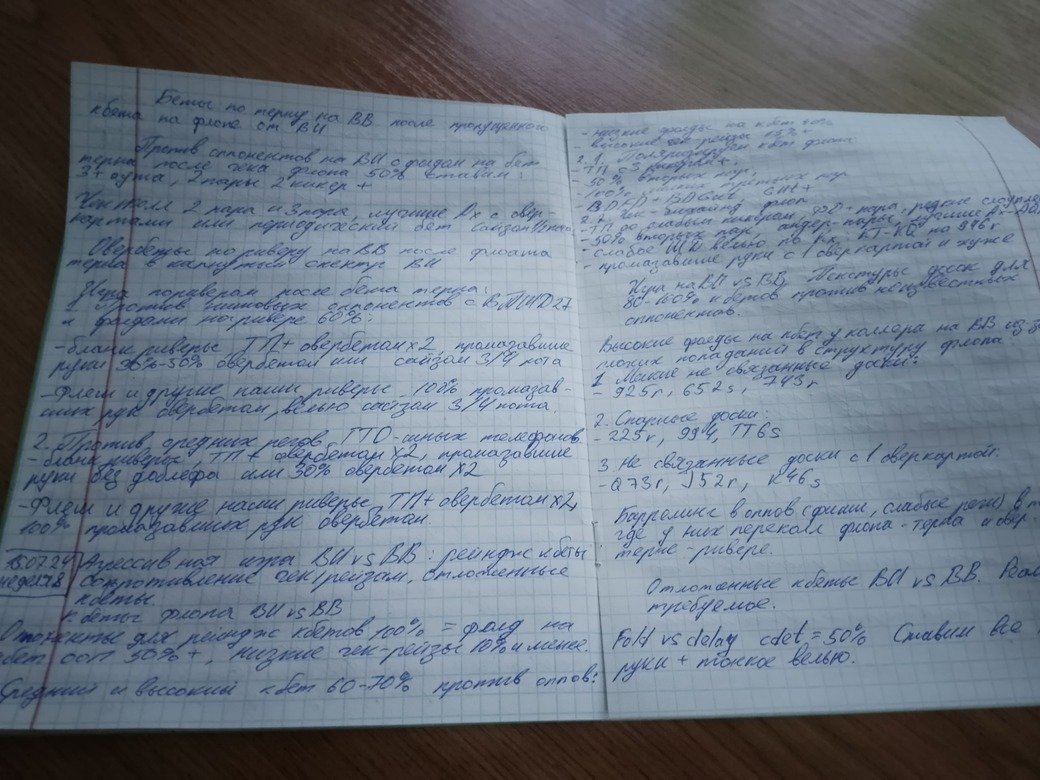 Беты по терну на ВВ после пропущенного
кбета на флопе от BU
Против оппонентов на BU с фолдом на бет
терна после чека флопа 50% ставим:
3+аута, 2 пары 2 кикер +
Чекаем 2 пара и 3 пара, лучшие Ах с овер-
картами или периодический бет
Овербеты по риверу на ВВ после флоата
терна в капнутый спектр BU
Игра по риверам после бета терна:
1. Против типовых оппонентов с ВТИПД 27
и фолдами на ривере 60%:
-бланк риверы ТП+ овербетом х2, промазавшие
руки 30%-50% овербетом или сайзом 3/4 пота
-Флеш и другие наши риверы - 100% промазав-
ших рук овербетом, велью сайзом 3/4 пота.
2. Против средних регов ГТО-шных телефонов
-бланк риверы - ТП+ овербетом х2, промазавшие
руки без доблефа или 30% овербетом х2
-Флеш и другие наши риверы, ТП+ овербетом х2,
100% промазавших рук овербетом.
15.07.24
неделя 8
Агрессивная игра BU vs BB: рейндж кбеты
сопротивление чек/рейзам, отложенные
кбеты.
кбеты флопа BU vs BB
Оппоненты для рейндж кбетов 100% = фолд на
кбет ооп 50%+, низкие чек-рейзы 10% и менее.
Средний и высокий кбет 60-70% против оппов:
-низкие фолды на кбет 40%
-высокие чек рейзы 15%+
2.1. Поляризуем кбет флопа:
ТП с 3 кикером+,
50% вторых пар,
100% третьих пар
BDFD + BDGut, Gut+
2.2. Чек-бихайнд флоп
-ТП со слабым кикером, ФД+пара, редкие слоуплеи
-50% вторых пар, андер-пары, лучшие А-
слабое ШД велью по Кх, KT-KQ на 996r
-промазавшие руки с 1 оверкартой и хуже
Игра на BU vs BB. Текстуры досок для
80-100% кбетов против неизвестных
оппонентов.
Высокие фолды на кбет у коллера на ВВ из-за
плохих попаданий в структуру флопа
1. Мелкие не связанные доски:
- 925r, 652s, 743r
2. Спаренные доски:
- 225r, 994, TT6s
3. Не связанные доски с 1 оверкартой:
- Q73r, J52r, K46s
Баррелинг в оппов (фиши, слабые реги) в
где у них переколл флопа-терна и овер
терне-ривере.
Отложенные кбеты BU vs BB.
требуемое.
Fold vs delay cbet = 50% Ставим все
руки + тонкое велью.